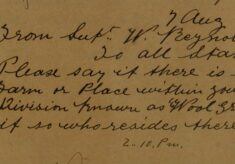 7 Aug
From Supt. W. Reynol
To all Sta
Please say if there is
Farm or Place within you
Division known as Wool Gr
if so who resides there
2-10. P.m.